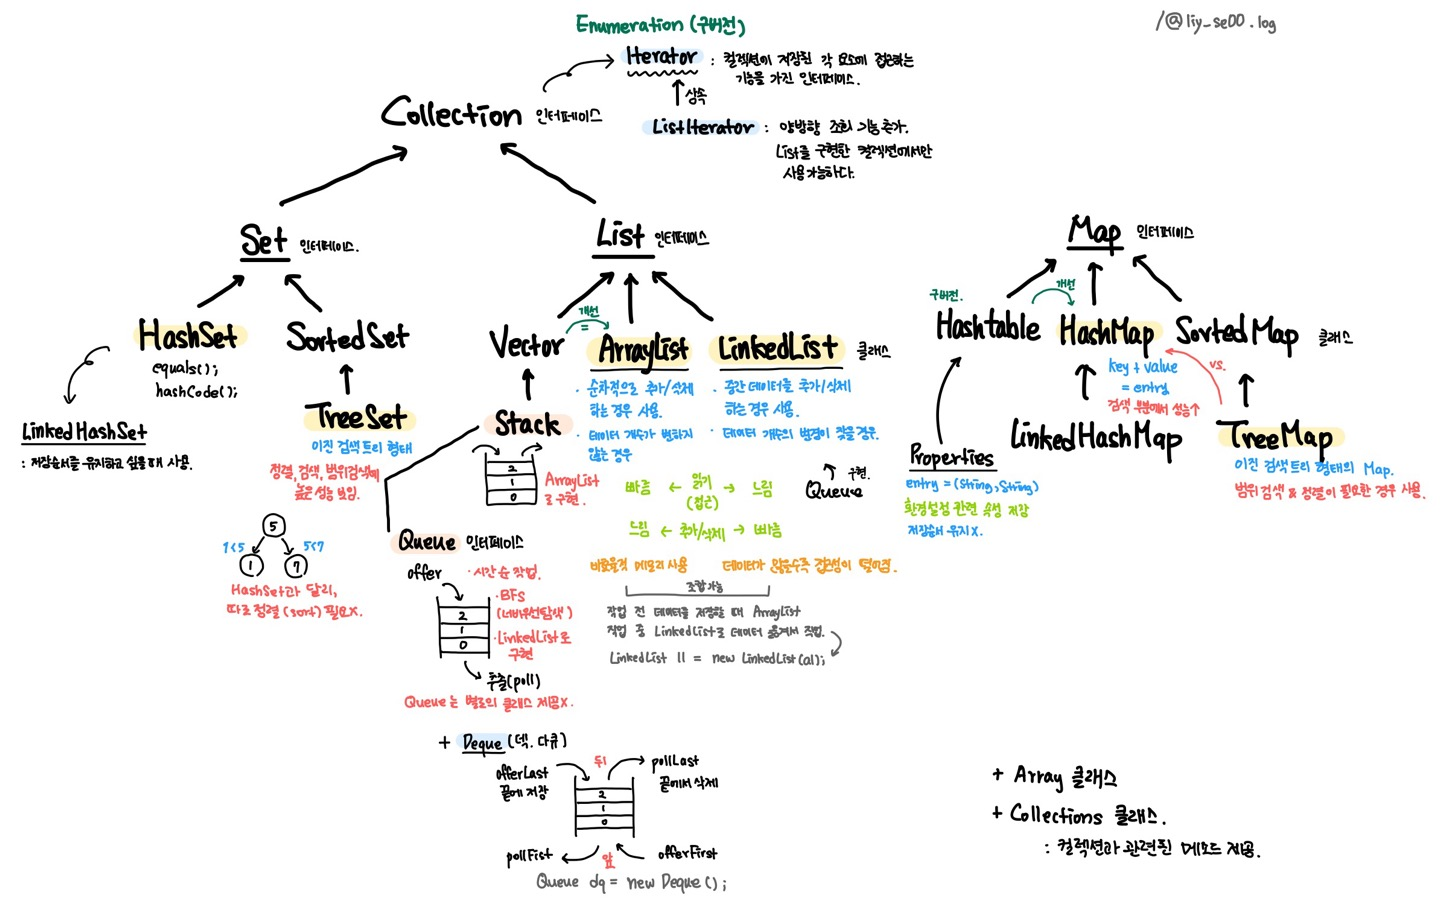 /@liy_se00.log
Enumeration (구버전)
Iterator : 컬렉션이 저장된 각 요소에 접근하는
기능을 가진 인터페이스.
상속
ListIterator : 양방향 조회 기능추가.
List를 구현한 컬렉션에서만
사용가능하다.
Collection 인터페이스
Set 인터페이스.
List 인터페이스
Map 인터페이스
HashSet
equals();
hashCode();
SortedSet
LinkedHashSet
: 저장순서를 유지하고 싶을 때 사용.
TreeSet
이진 검색 트리 형태
정렬, 검색, 범위검색에
높은 성능 보임.
5
1<5
5<7
1
7
HashSet과 달리,
따로 정렬 (sort) 필요X.
Vector
개선
=
ArrayList
LinkedList 클래스
· 순차적으로 추가/삭제
하는 경우 사용.
· 데이터 개수가 변하지
않는 경우
· 중간 데이터를 추가/삭제
하는 경우 사용.
· 데이터 개수의 변경이 잦을 경우.
Stack
2
1
0
ArrayList
로 구현.
빠름 ← 읽기 → 느림
(접근)
느림 ← 추가/삭제 → 빠름
구현.
Queue
비효율적 메모리 사용
데이터가 많을수록 접근성이 떨어짐.
조합가능
작업 전 데이터를 저장할 때 ArrayList
작업 중 LinkedList로 데이터 옮겨서 작업.
LinkedList ll = new LinkedList(al);
Queue 인터페이스
offer
2
1
0
추출(poll)
· 시간순 작업.
· BFS
(너비우선탐색)
· LinkedList로
구현
Queue는 별도의 클래스 제공X.
+ Deque (덱. 디큐)
offerLast
끝에 저장
뒤
pollLast
끝에서 삭제
2
1
0
pollFist
앞
offerFirst
Queue dq = new Deque();
구버전.
개선
Hashtable
HashMap
SortedMap 클래스
key + value
= entry
검색 부분에서 성능↑
vs.
LinkedHashMap
TreeMap
이진 검색 트리 형태의 Map.
범위 검색 & 정렬이 필요한 경우 사용.
Properties
entry = (String, String)
환경설정 관련 속성 저장
저장순서 유지X.
+ Array 클래스
+ Collections 클래스.
: 컬렉션과 관련된 메소드 제공.